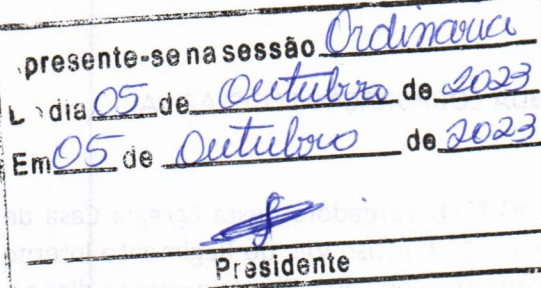 presente-se na sessão Ordinaria
L dia 05 de Outubro de 2023
Em 05 de Outubro de 2023
Presidente